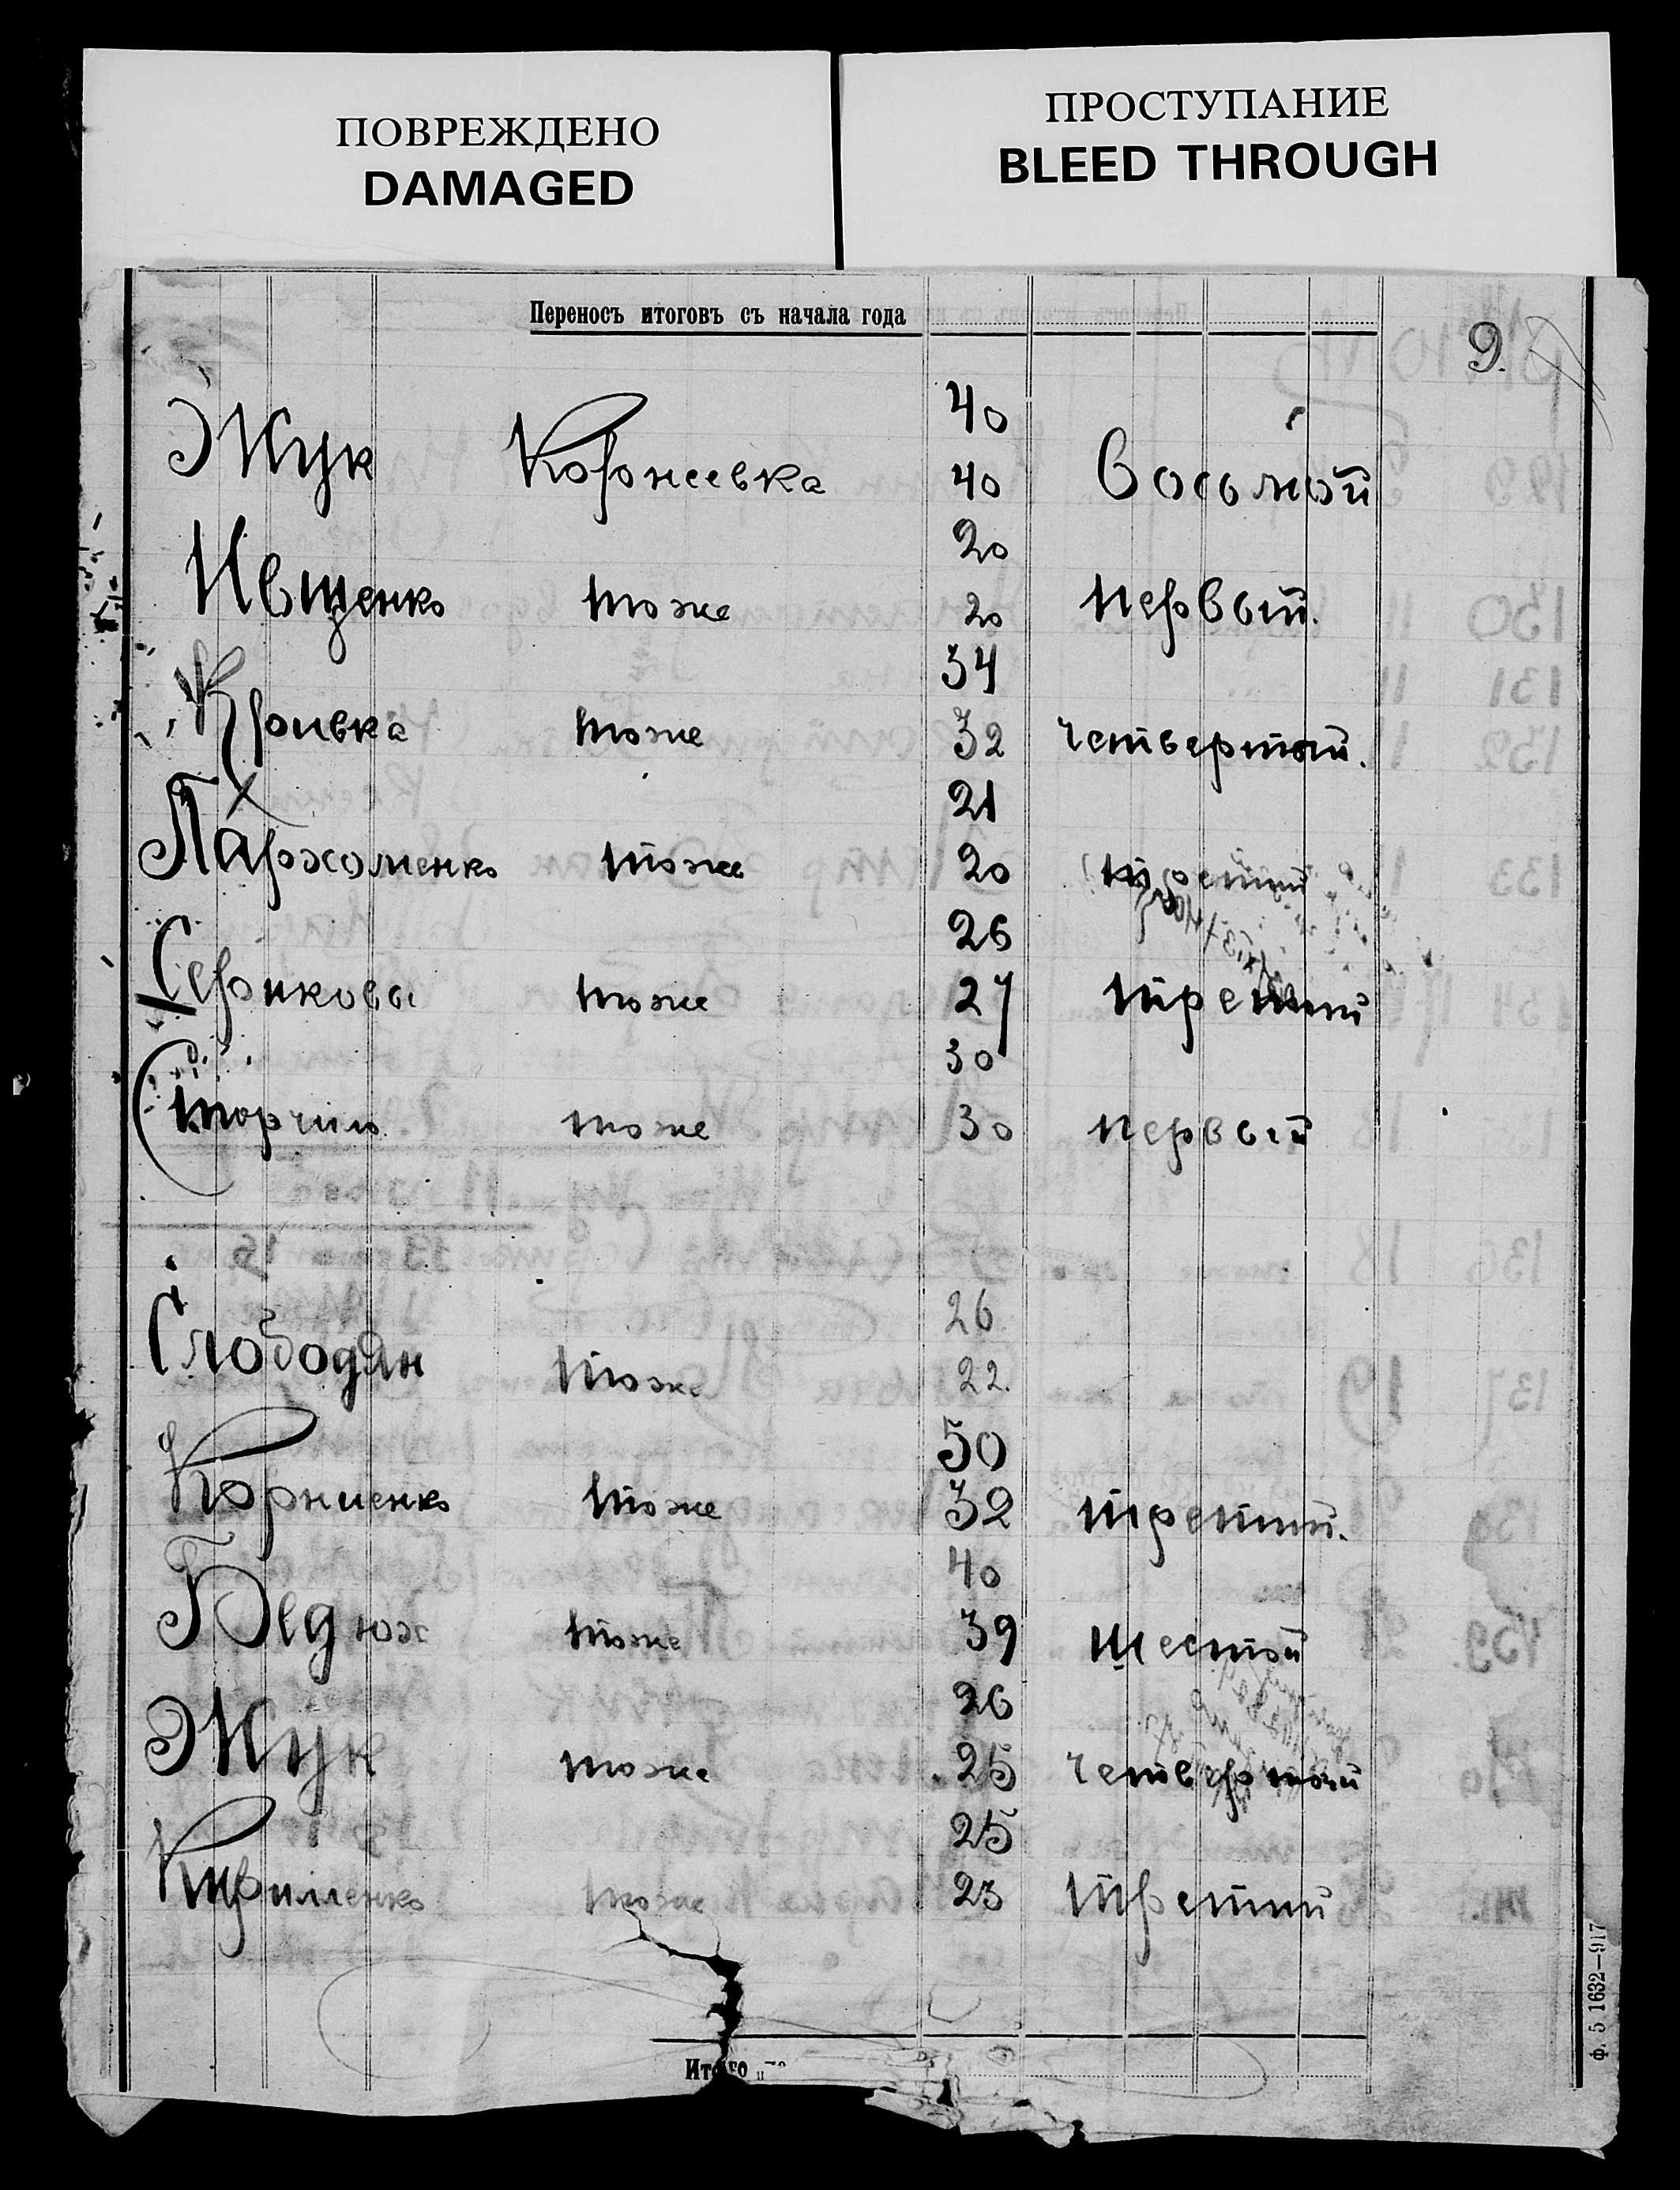 ПОВРЕЖДЕНО
DAMAGED
ПРОСТУПАНИЕ
BLEED THROUGH
Переносъ итоговъ съ начала года
9.
40
Жук Корнеевка 40 Восьмой
20
Ивщенко тоже 20 первый.
34
Кривка тоже 32 четвертый.
21
Пархоменко тоже 20 третий
26
Сериковы тоже 27 третий
30
тоже 30 первый
26
Слободян тоже 22.
50
Корниенко тоже 32 третий.
40
Бедюх тоже 39 шестой
26
Жук тоже 25 четвертый
25
Кириленко тоже 23 третий
Итого
ф. 5 1632—917